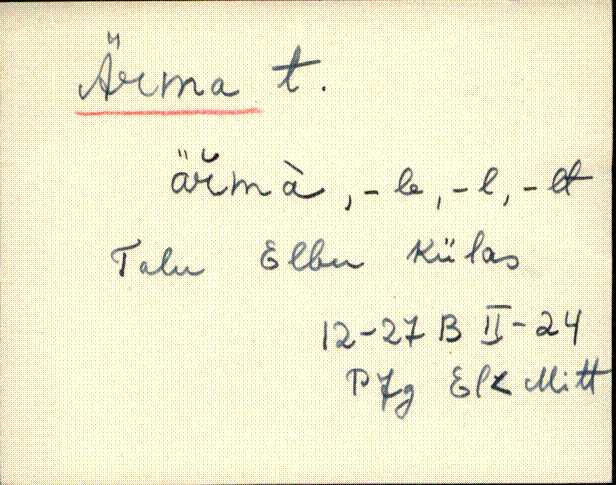 Ärma t.
ärmà, -le, -l, -lt
Talu Elbu Külas
12-27 B II-24
PJg Elz Mitt